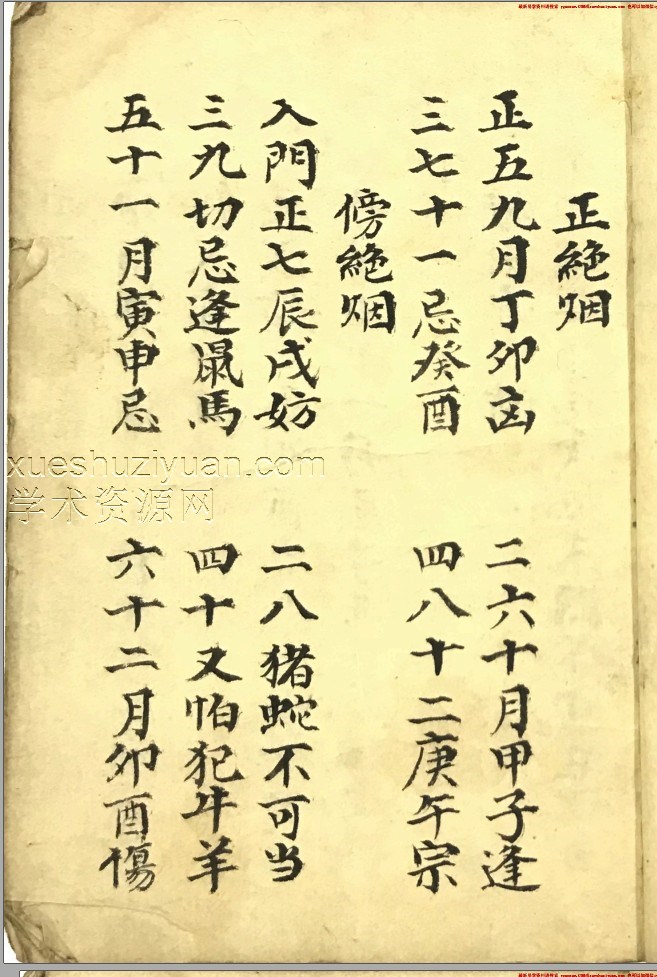 正絶烟
正五九月丁卯凶 二六十月甲子逢
三七十一忌癸酉 四八十二庚午宗
傍絶烟
入門正七辰戌妨 二八猪蛇不可当
三九切忌逢鼠馬 四十又怕犯牛羊
五十一月寅申忌 六十二月卯酉傷
xueshuziyuan.com
学术资源网